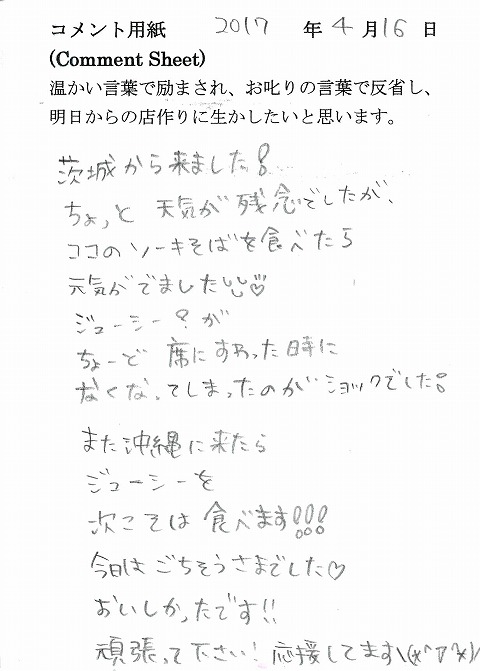 コメント用紙 2017 年 4 月 16 日
(Comment Sheet)
温かい言葉で励まされ、お叱りの言葉で反省し、
明日からの店作りに生かしたいと思います。
茨城から来ました!
ちょっと 天気が残念でしたが、
ココのソーキそばを食べたら
元気がでました!!♡
ジューシー?が
ちょーど 席にすわった時に
なくなってしまったのが ショックでした!
また沖縄に来たら
ジューシーを
次こそは 食べます!!!
今日は ごちそうさまでした♡
おいしかったです!!
頑張って下さい! 応援してます\(*^▽^*)/